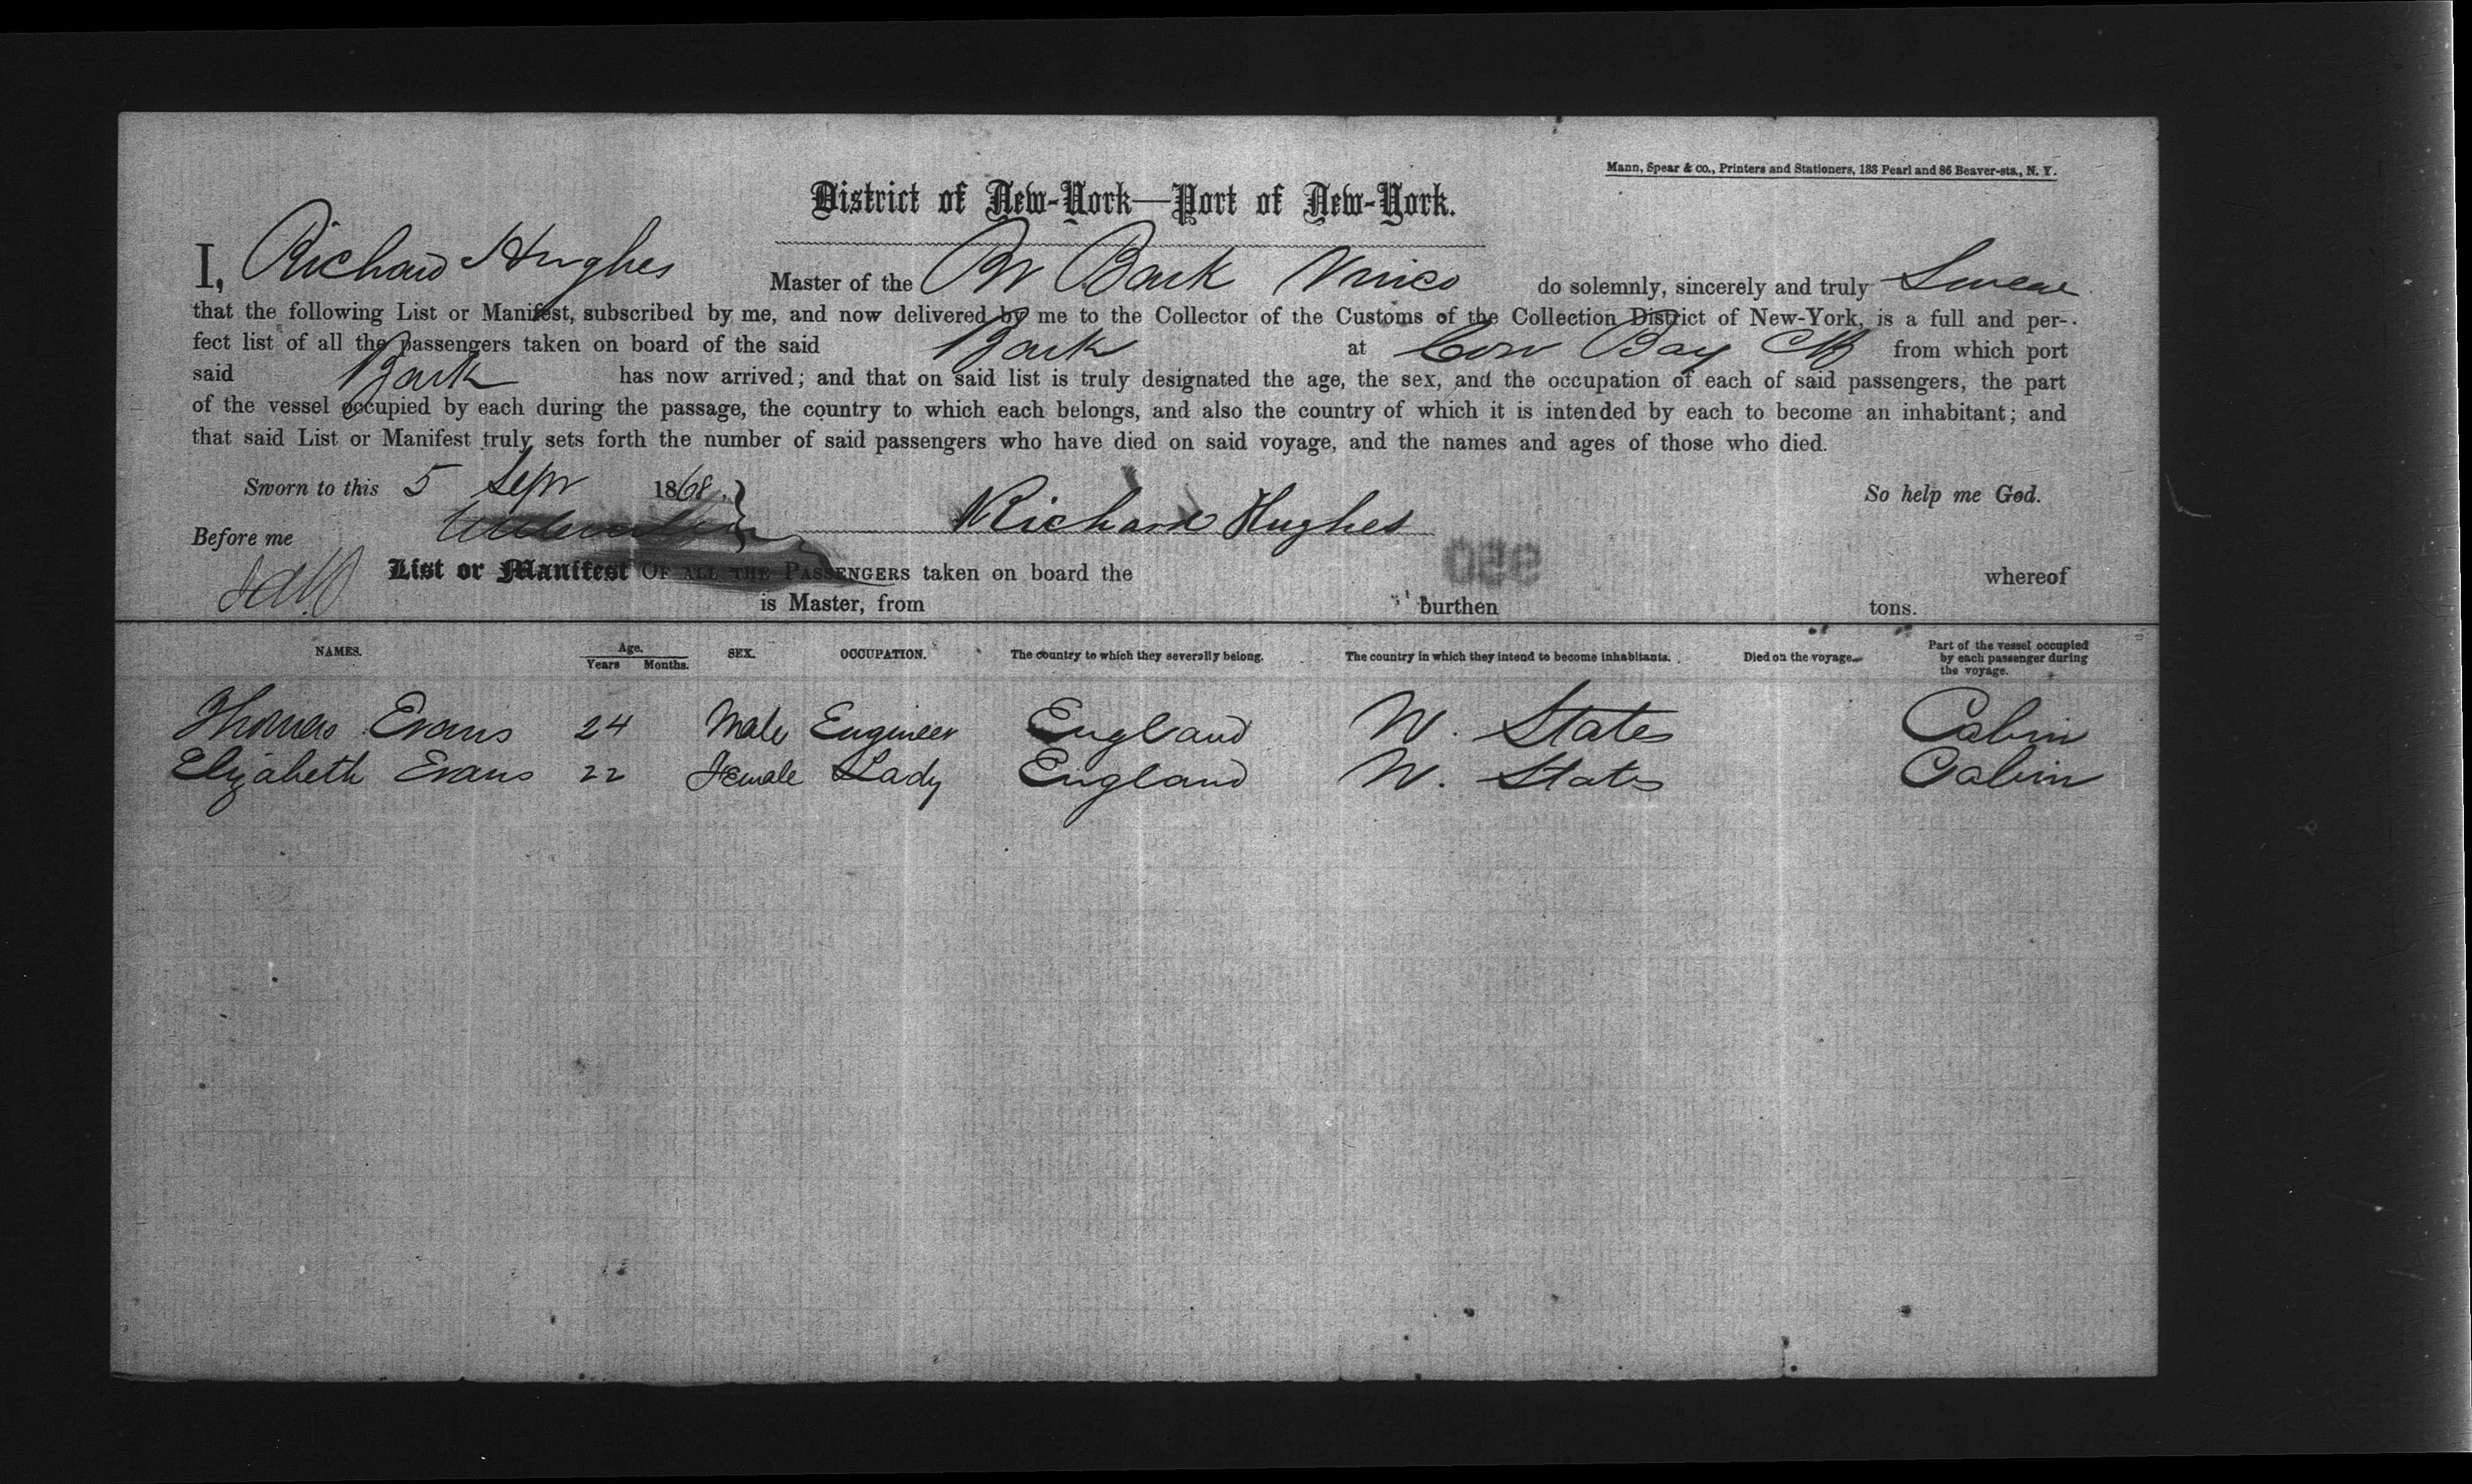 Mann, Spear & co., Printers and Stationers, 133 Pearl and 86 Beaver-sts., N. Y.
District of New-York—Port of New-York.
I, Richard Hughes Master of the Br Bark do solemnly, sincerely and truly Swear
that the following List or Manifest, subscribed by me, and now delivered by me to the Collector of the Customs of the Collection District of New-York, is a full and per-
fect list of all the passengers taken on board of the said Bark at Cow Bay CB from which port
said Bark has now arrived; and that on said list is truly designated the age, the sex, and the occupation of each of said passengers, the part
of the vessel occupied by each during the passage, the country to which each belongs, and also the country of which it is intended by each to become an inhabitant; and
that said List or Manifest truly sets forth the number of said passengers who have died on said voyage, and the names and ages of those who died.
Sworn to this 5 Sepr 1868. So help me God.
Before me Richard Hughes
List or Manifest OF ALL THE PASSENGERS taken on board the whereof
is Master, from burthen tons.
NAMES. Age. Years Months. SEX. OCCUPATION. The country to which they severally belong. The country in which they intend to become inhabitants. Died on the voyage. Part of the vessel occupied by each passenger during the voyage.
Thomas Evans 24 Male Engineer England U. States Cabin
Elizabeth Evans 22 Female Lady England U. States Cabin